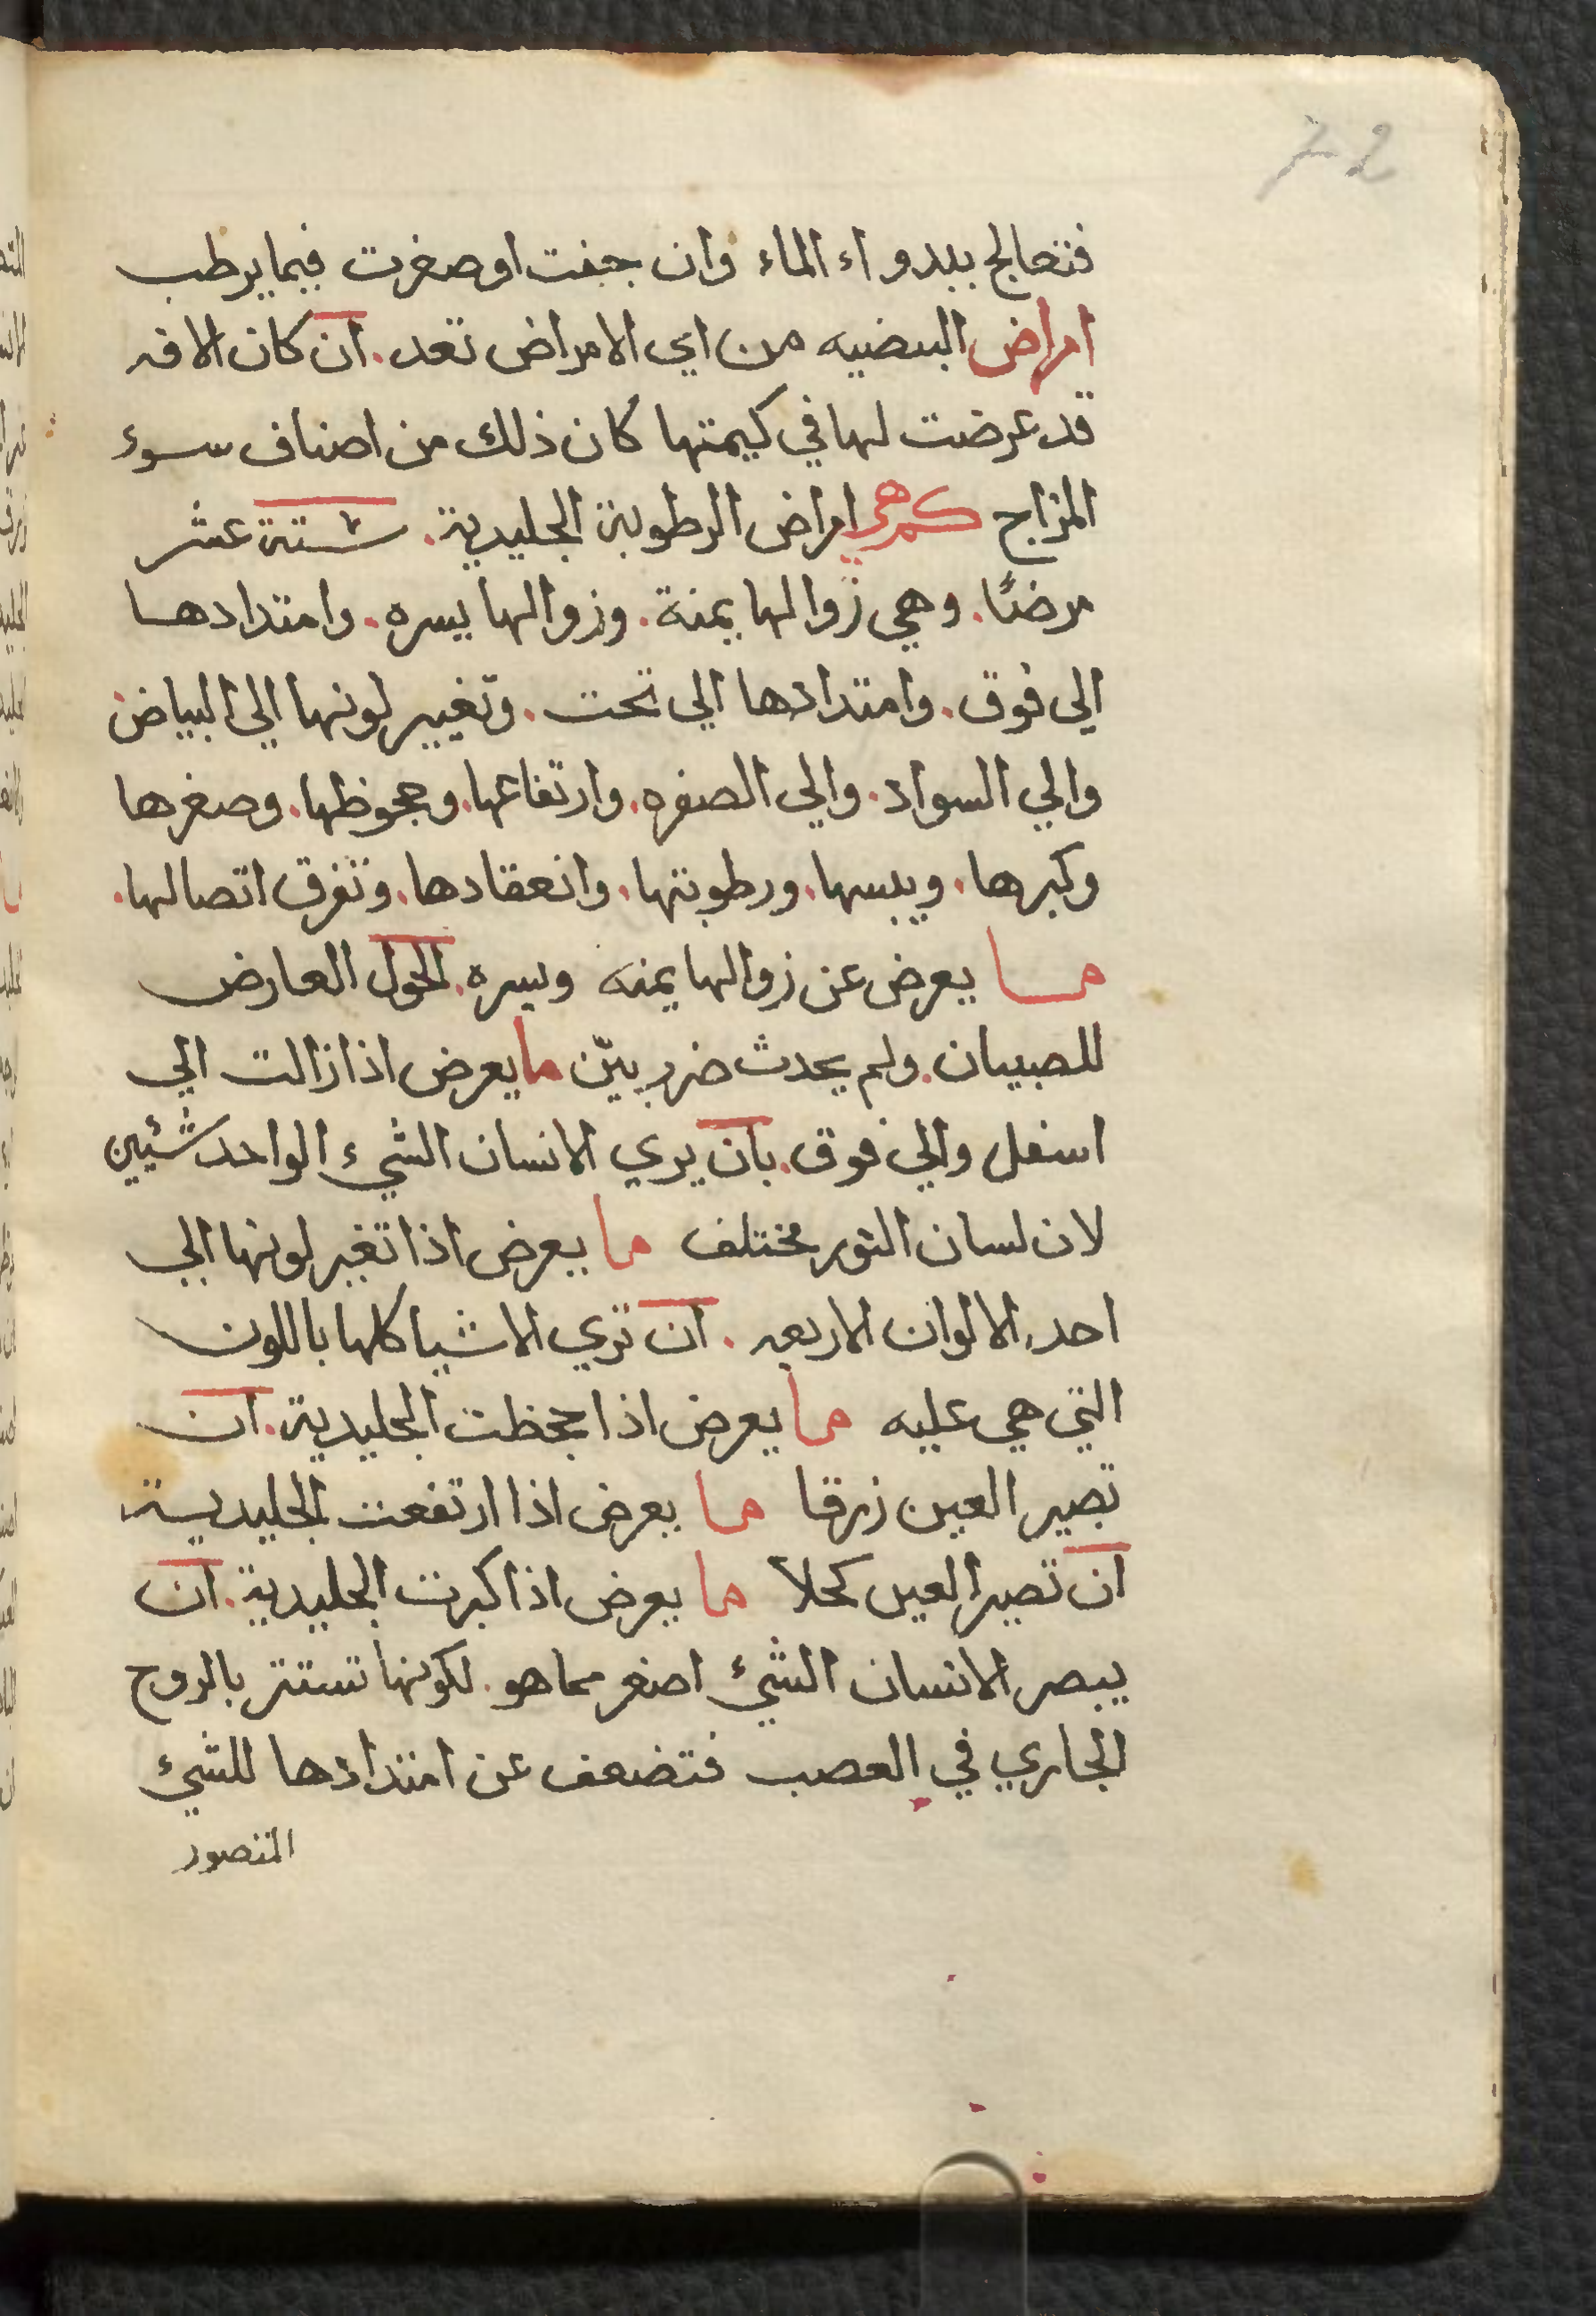 72
فتعالج ببدواء الماء وان جفت او صغرت فبما يرطب
امراض البيضيه من اي الامراض تعد. ان كان الافه
قد عرضت لها في كيمتها كان ذلك من اصناف سوء
المزاج كم هي امراض الرطوبة الجليدية. ستة عشر
مرضًا. وهي زوالها يمنة. وزوالها يسره. وامتدادها
الي فوق. وامتدادها الي تحت. وتغيير لونها الي البياض
والي السواد. والي الصفره. وارتفاعها. وجحوظها. وصغرها
وكبرها. ويبسها. ورطوبتها. وانعقادها. وتفرق اتصالها.
ما يعرض عن زوالها يمنه ويسره. الحول العارض
للصبيان. ولم يحدث ضرر بيّن ما يعرض اذا زالت الي
اسفل والي فوق. بان يري الانسان الشيء الواحد شئين
لان لسان النور مختلف ما يعرض اذا تغير لونها الي
احد الالوان الاربعه. ان تري الاشيا كلها باللون
التي هي عليه ما يعرض اذا جحظت الجليدية. ان
تصير العين زرقا ما يعرض اذا ارتفعت الجليدية
ان تصير العين كحلا ما يعرض اذا كبرت الجليدية. ان
يبصر الانسان الشئ اصغر مما هو. لكونها تستتر بالروح
الجاري في العصب فتضعف عن امتدادها للشئ
المتصور